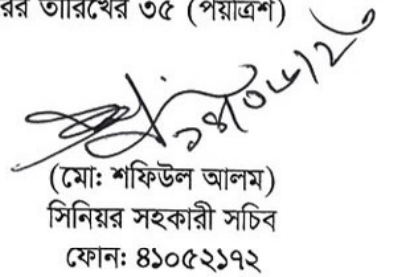 তারিখের ৩৫ (পয়ত্রিশ)
(মো: শফিউল আলম)
সিনিয়র সহকারী সচিব
ফোন: ৪১০৫২১৭২